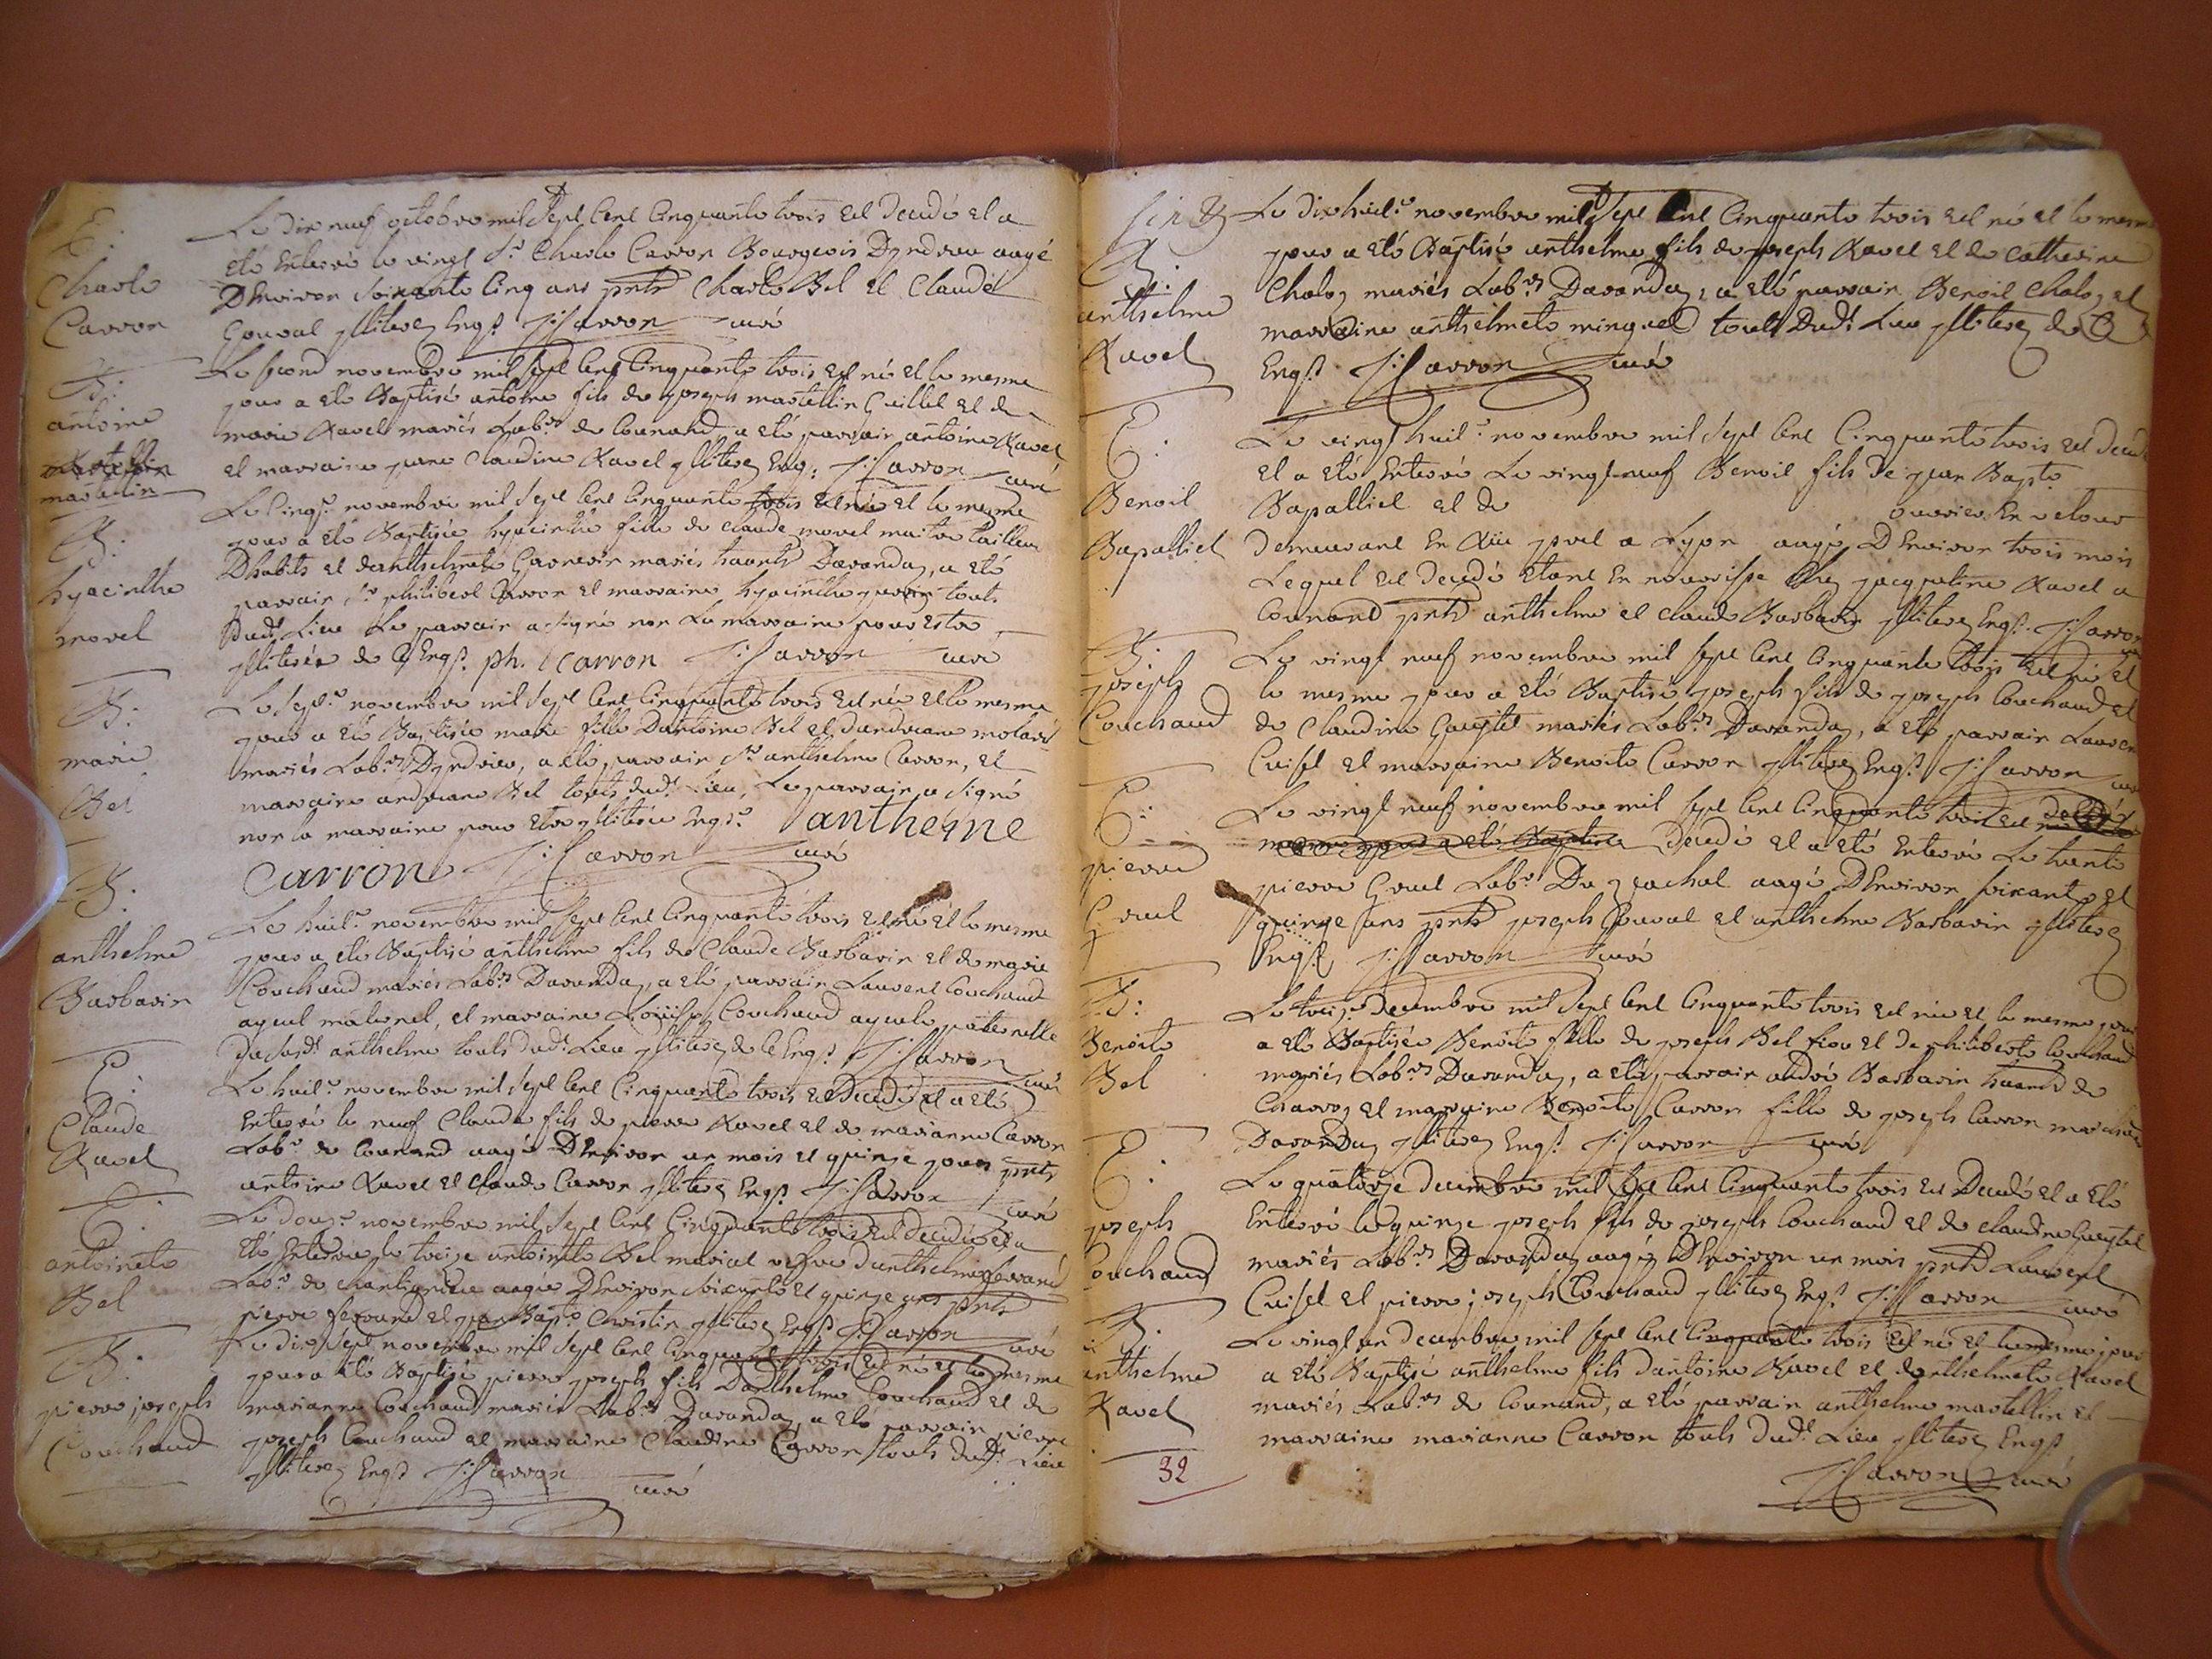 E:
Charle
Carron
Le dix neuf octobre mil sept cent cinquante trois est decedé et a
eté enterré le vingt Sr Charle Carron Bourgeois Dyndrieu aagé
D'Environ soixante cinq ans pnts Charle Bel et Claude
Gouval illiterez Engst J: Carron curé
B:
antoine
martellin
Le second novembre mil sept cent cinquante trois est né et le mesme
jour a eté Baptisé antoine fils de joseph martellin Guillet et de
marie Ravel mariés Labrs de Counand a eté parrain antoine Ravel
et marraine jeane Claudine Ravel illiterez Eng: J: Carron curé
B:
hyacinthe
morel
Le cinqe novembre mil sept cent cinquante trois est née et le mesme
jour a eté Baptisée hyacinthe fille de claude morel maitre tailleur
D'habits et danthelmete Garnerin mariés havnts Davanday, a eté
parrain Sr philibert Carron et marraine hyacinthe touts
Dudt Lieu Le parrain a signé non La marraine pour estre
illiterée de ce Engst ph. Carron J: Carron curé
B:
marie
Bel
Le septe novembre mil sept cent cinquante trois est née et le mesme
jour a eté Baptisée marie fille Dantoine Bel et dandreane molard
mariés Labrs Dyndrieu, a eté parrain Sr anthelme Carron, et
marraine andreane Bel touts dudt Lieu, Le parrain a signé
non la marraine pour etre illiterée Engst anthelme
Carron J: Carron curé
B:
anthelme
Barbarin
Le huite novembre mil sept cent cinquante trois est né et le mesme
jour a eté Baptisé anthelme fils de Claude Barbarin et de marie
Couchaud mariés Labrs Davanday, a eté parrain Laurent Couchaud
ayeul maternel, et marraine Louise Couchaud ayeule paternelle
Dususdt anthelme touts dudt Lieu illiterez de ce Engst J: Carron curé
E:
Claude
Ravel
Le huite novembre mil sept cent cinquante trois est Decedé et a eté
Enterré le neuf Claude fils de pierre Ravel et de marianne Carron
Labr de Counand aagé D'Environ un mois et quinze jours pnts
antoine Ravel et claude Carron illiterez Engst J: Carron curé
E:
antoinete
Bel
Le douze novembre mil sept cent cinquante trois est decedée et a
eté Enterrée le treize antoinete Bel vefve danthelme ferrand
Labr de aagée D'Environ soixante et quinze ans pnts
pierre ferrand et jean Bapte Christin illiterez Engst J: Carron curé
B:
pierre joseph
Couchaud
Le dix sept novembre mil sept cent cinquante trois est né et le mesme
jour a eté Baptisé pierre joseph fils Danthelme Couchaud et de
marianne Couchaud mariés Labrs Davanday, a eté parrain pierre
joseph Couchaud et marraine Claudine Carron touts dudt Lieu
illiterez Engst J: Carron curé
B:
anthelme
Ravel
Le dix huite novembre mil sept cent cinquante trois est né et le mesme
jour a eté Baptisé anthelme fils de joseph Ravel et de catherine
Chaloz mariés Labrs Davanday, a eté parrain Benoit Chaloz et
marraine anthelmete minguet touts Dudt Lieu illiterez de ce
Engst J: Carron curé
E:
Benoit
Bapalliet
Le vingt huite novembre mil sept cent cinquante trois est decedé
et a eté Enterré Le vingt neuf Benoit fils de jean Bapte
Bapalliet et de ouvrier En velour
demeurant En a Lyon aagé D'Environ trois mois
Lequel est decedé etant En nourrisse chez jacqueline Ravel a
Counand pnts anthelme et claude Barbarin illiterez Engst J: Carron
B:
joseph
Couchaud
Le vingt neuf novembre mil sept cent cinquante trois est né et
le mesme jour a eté Baptisé joseph fils de joseph Couchaud et
de Claudine Gueytet mariés Labrs Davanday, a eté parrain Laurent
Cuiset et marraine Benoite Carron illiterez Engst J: Carron curé
E:
pierre
Gruel
Le vingt neuf novembre mil sept cent cinquante trois est
mesme jour a eté Baptisé Decedé et a eté Enterré Le trente
pierre Gruel Labr aagé D'Environ soixante et
quinze ans pnts joseph Gouval et anthelme Barbarin illiterez
Engst J: Carron curé
B:
Benoite
Bel
Le treize decembre mil sept cent cinquante trois est née et le mesme jour
a eté Baptisée Benoite fille de joseph Bel et de philiberte Couchaud
mariés Labrs Davanday, a eté parrain andré Barbarin havnt de
Charroz et marraine Benoite Carron fille de joseph Carron marchand
Davanday illiterez Engst J: Carron curé
E:
joseph
Couchaud
Le quatorze decembre mil sept cent cinquante trois est Decedé et a eté
Enterré le quinze joseph fils de joseph Couchaud et de claudine Gueytet
mariés Labrs Davanday aagé D'Environ un mois pnts Laurent
Cuiset et pierre joseph Couchaud illiterez Engst J: Carron curé
B:
anthelme
Ravel
Le vingt un decembre mil sept cent cinquante trois est né et le mesme jour
a eté Baptisé anthelme fils dantoine Ravel et danthelmete Ravel
mariés Labrs de Counand, a eté parrain anthelme martellin et
marraine marianne Carron touts dudt Lieu illiterez Engst
J: Carron curé
32